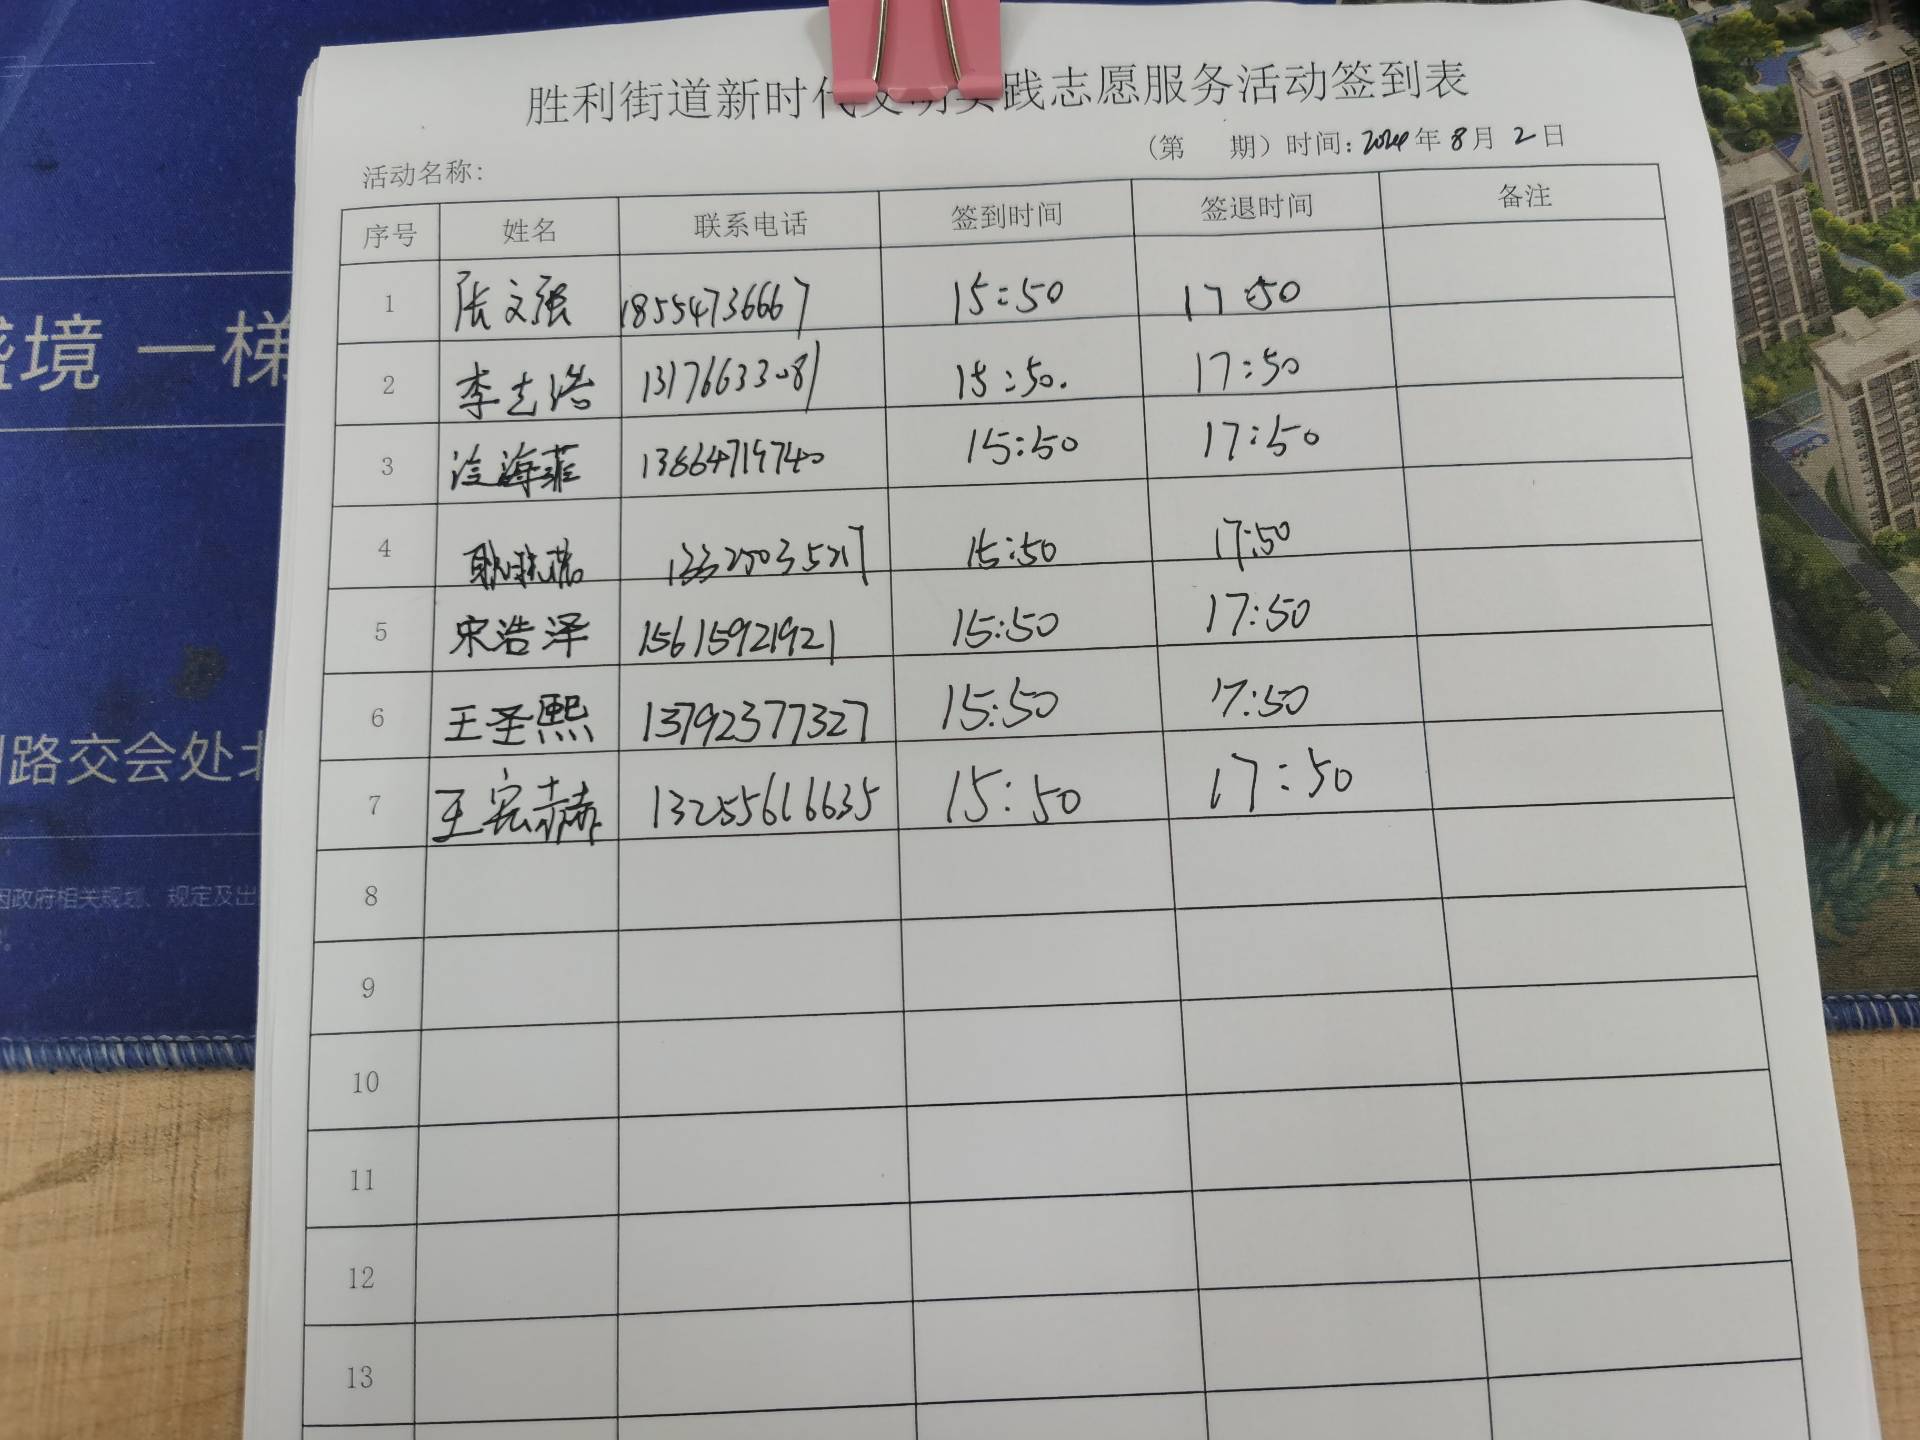 胜利街道新时代文明实践志愿服务活动签到表
(第 期) 时间: 2024年 8月 2日
活动名称:
序号 姓名 联系电话 签到时间 签退时间 备注
1 张文强 18554736667 15:50 17:50
2 李志浩 13176633081 15:50. 17:50
3 海菲 13864719740 15:50 17:50
4 15:50 17:50
5 宋浩泽 15615921921 15:50 17:50
6 王圣熙 13792377327 15:50 17:50
7 王宏赫 13255616635 15:50 17:50
8
9
10
11
12
13
境 一梯
路交会处北
因政府相关规划、规定及出